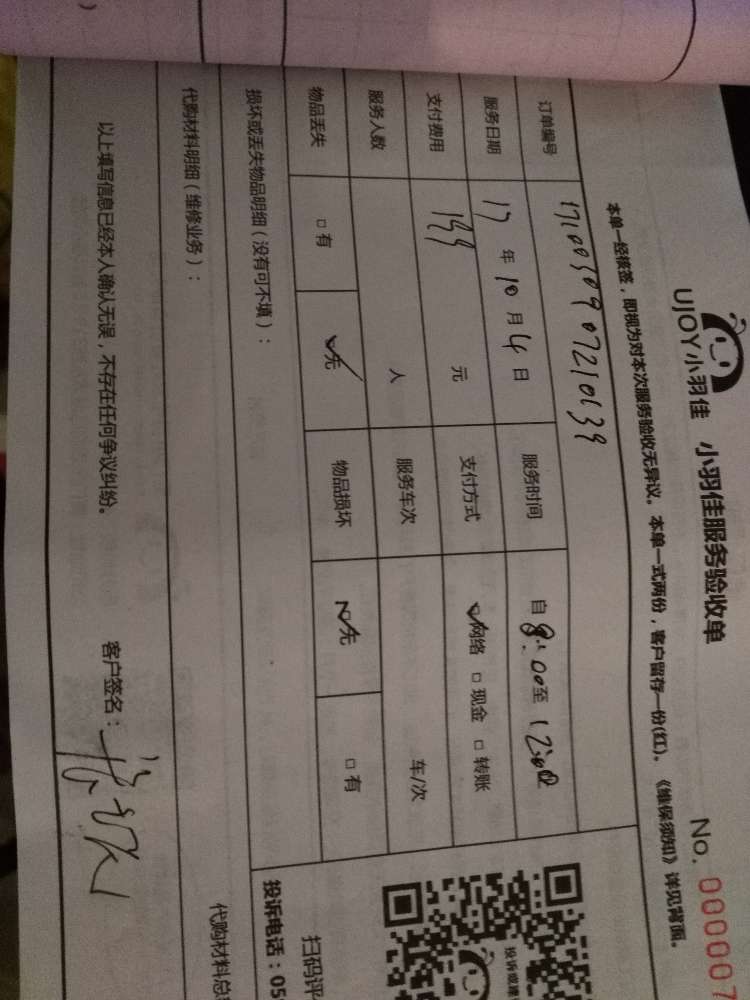 UJOY小羽佳 小羽佳服务验收单
No. 0000007
本单一经核签，即视为对本次服务验收无异议。本单一式两份，客户留存一份(红)。《维保须知》详见背面。
订单编号 1710030907210639
服务日期 17 年 10 月 4 日 服务时间 自 8:00 至 12:00
支付费用 199 元 支付方式 ☑网络 □现金 □转账
服务人数 人 服务车次 车/次
物品丢失 □有 ☑无 物品损坏 ☑无 □有
损坏或丢失物品明细（没有可不填）：
代购材料明细（维修业务）：
以上填写信息已经本人确认无误，不存在任何争议纠纷。
客户签名：
扫码评
投诉电话：05
代购材料总